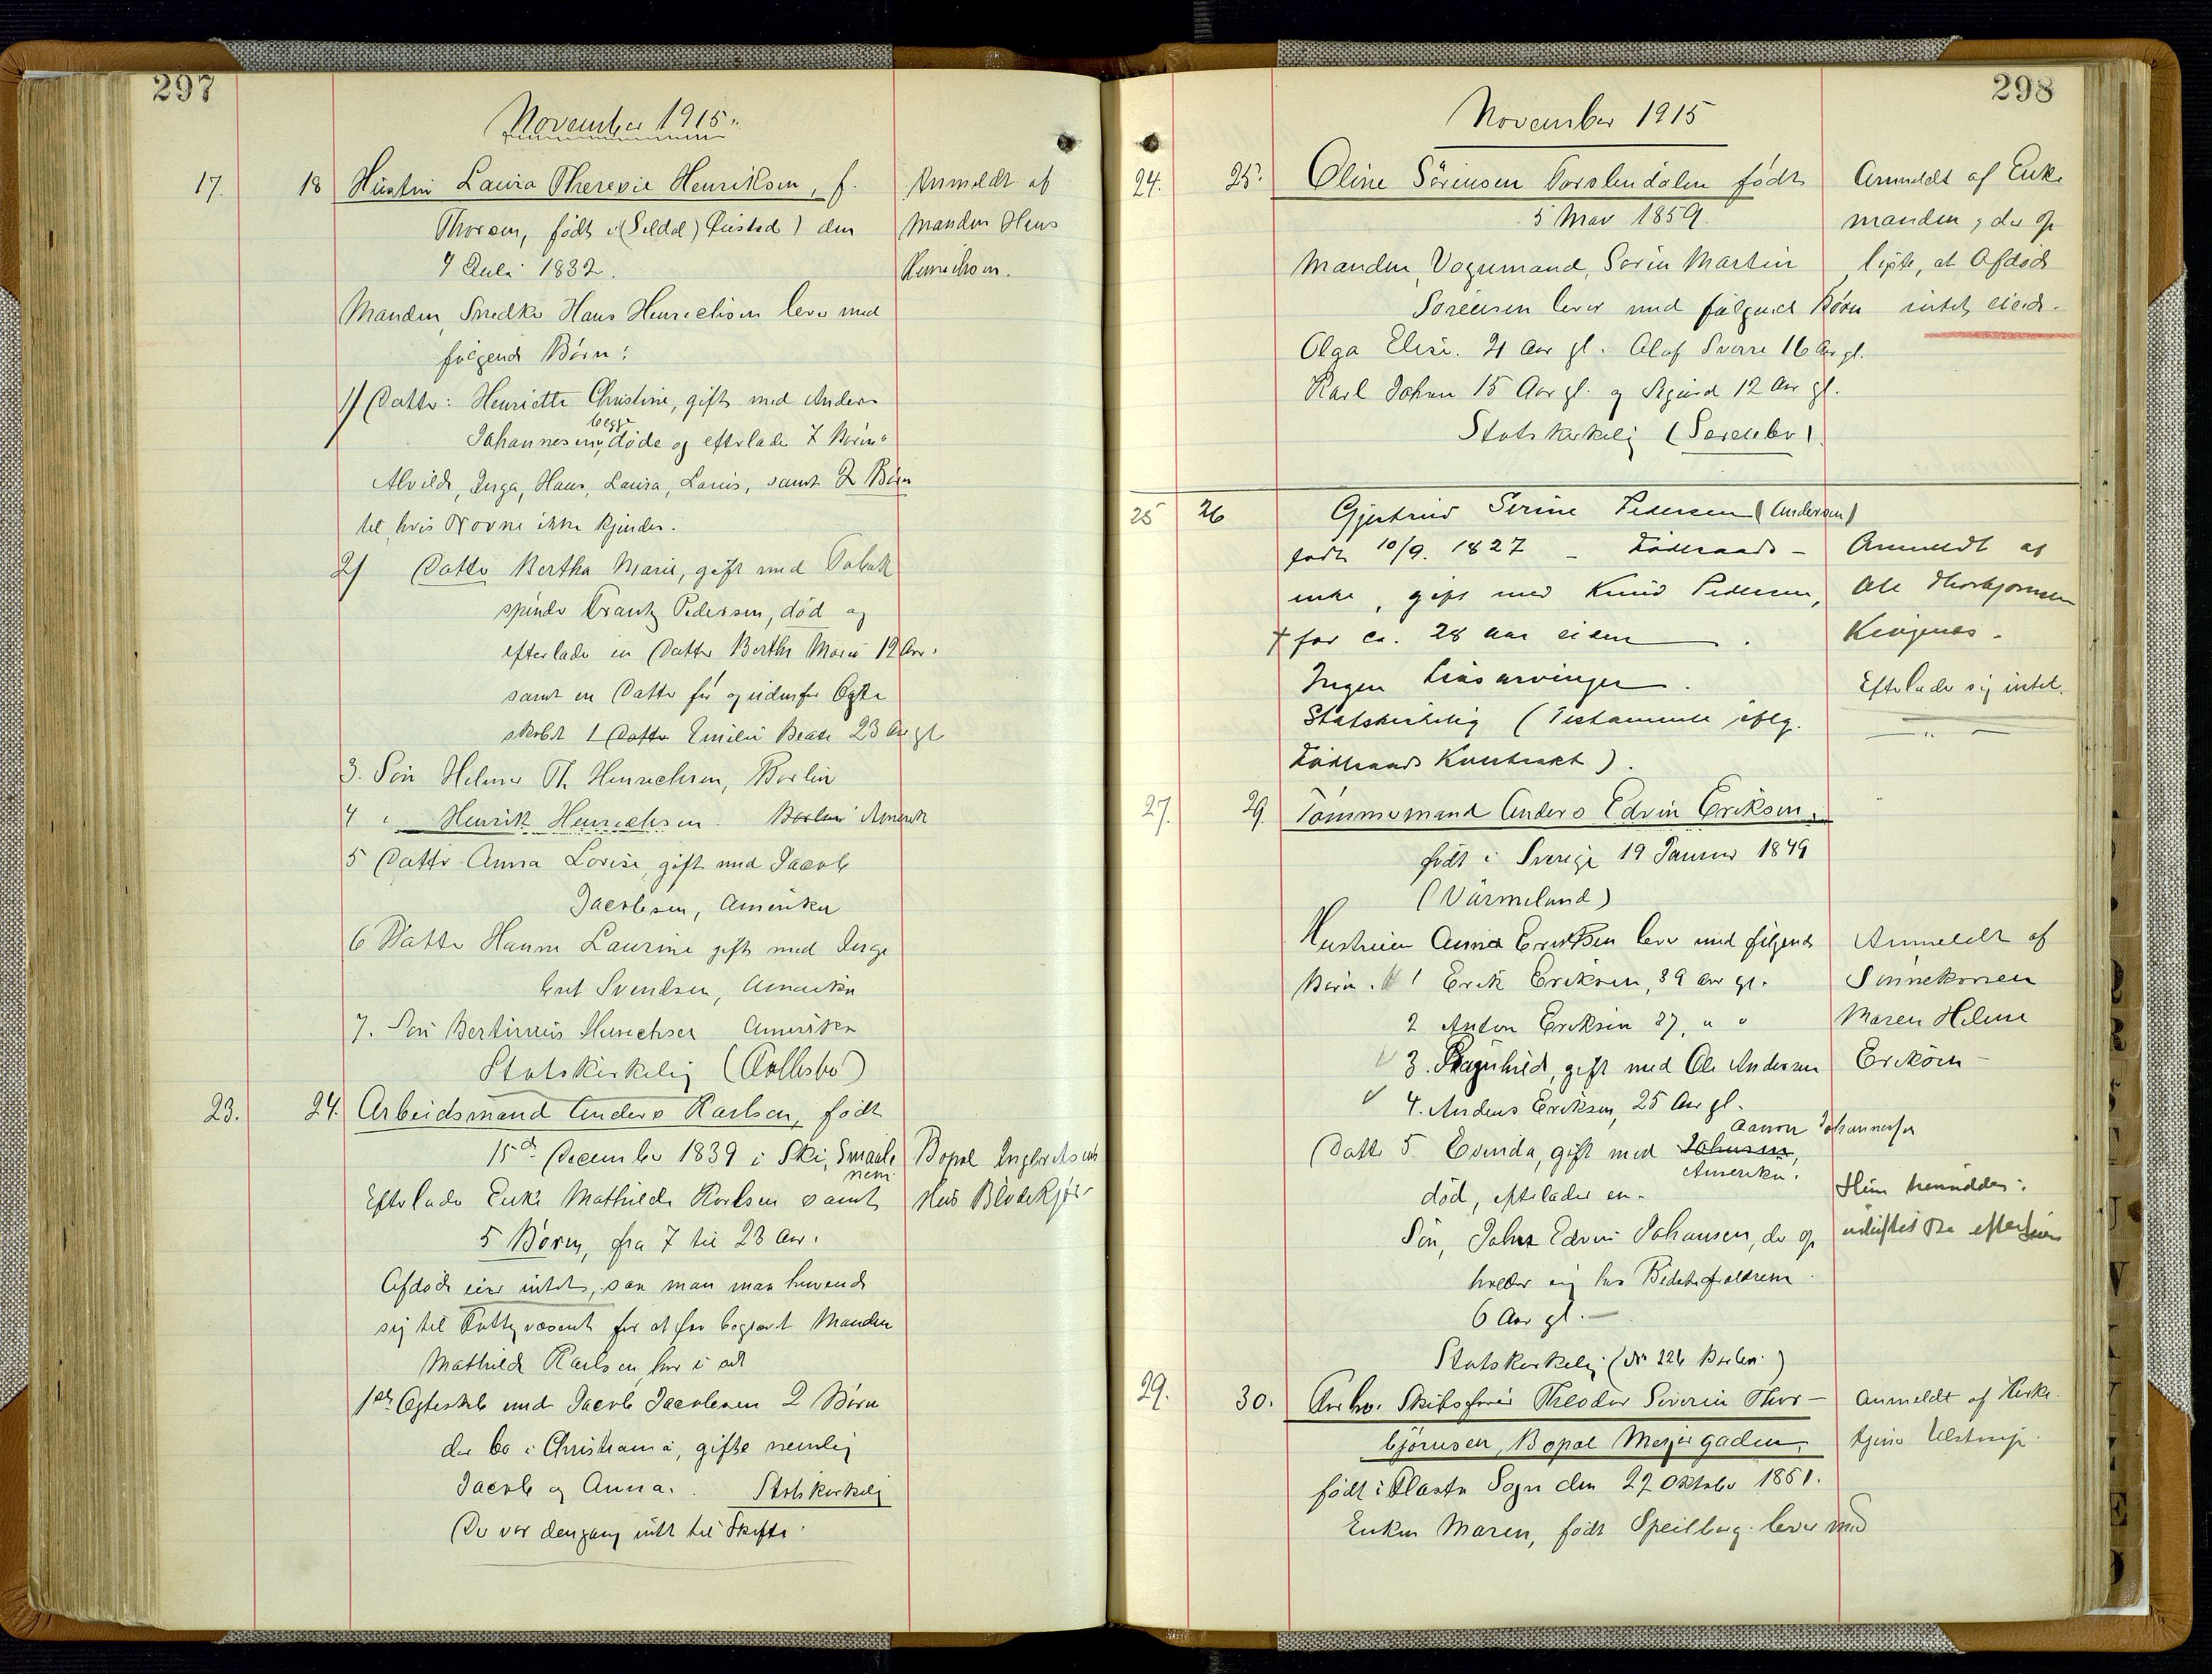 297
November 1915.
17. 18 Hustru Laura Theresie Henriksen, f.
Thorsen, født i (Seldal) den
4 Juli 1832.
Anmeldt af
Manden Hans
Henrichsen.
Manden, Snedker Hans Henrichsen lever med
følgende Børn:
1/ Datter: Henriette Christine, gift med Anders
Johannesen, begge døde og efterlader 7 Børn
Alvilde, Inga, Hans, Laura, Louis, samt 2 Børn
til, hvis Navne ikke kjendes.
2/ Datter Bertha Marie, gift med Tobak
spinder Frantz Pedersen, død og
efterlader en Datter Bertha Marie 12 Aar.
samt en Datter før og udenfor Egte
skabet 1 Datter Emilie Beate 23 Aar gl
3. Søn Helmer Th. Henrichsen, Borlin
4 " Henrik Henrichsen. Amerik
5 Datter Anna Lovise, gift med Jacob
Jacobsen, Amerika
6 Datter Hanna Laurine gift med Inge
bret Svendsen, Amerika
7. Søn Bertinius Henrichsen Amerika
Statskirkelig
23. 24. Arbeidsmand Anders Karlsen, født
15de December 1839 i Ski, Smaale
nene
Bopæl
Hus Blødekjær
Efterlader Enke Mathilde Karlsen samt
5 Børn, fra 7 til 23 Aar.
Afdøde eier intet, saa man maa henvende
sig til Fattigvæsenet for at faa begravet Manden
Mathilde Karlsen har i sit
1ste Egteskab med Jacob Jacobsen 2 Børn
der bo i Christiania, gifte nemlig
Jacob og Anna. Statskirkelig
Der var dengang intet til Skifte.
298
November 1915
24. 25. Oline Sørensen Torslendalen født
5 Mar 1859.
Anmeldt af Enke
manden, der op
lyste, at Afdøde
intet eiede.
Manden, Vognmand, Søren Martin
Sørensen lever med følgende Børn
Olga Elise. 21 Aar gl. Olaf Sverre 16 Aar gl.
Karl Johan 15 Aar gl. og Sigurd 12 Aar gl.
Statskirkelig
25 26 Gjertrud Serine Pedersen (Andersen)
født 10/9. 1827 - Føderaads-
enke, gift med Knud Pedersen,
† for ca. 28 aar siden.
Ingen Livsarvinger.
Statskirkelig (Testamente iflg.
Føderaads Kontrakt).
Anmeldt af
Ole Thorbjørnsen
Efterlader sig intet.
27. 29. Tømmermand Anders Edvin Eriksen,
født i Sverige 19 Januar 1849
(Värmeland)
Hustruen Anna Eriksen lever med følgende
Børn. 1 Erik Eriksen, 39 Aar gl.
2 Anton Eriksen 37, " "
3. Ragnhild, gift med Ole Andersen
4. Anders Eriksen, 25 Aar gl.
Datter 5 Evinda, gift med Johansen, Aanon Johannesen
Amerika.
død, efterlader en
Søn, Johan Edvin Johansen, der op
holder sig hos Bedsteforældrene
6 Aar gl. -
Statskirkelig (No 226 Borlin)
Anmeldt af
Sønnekonen
Maren Helene
Eriksen -
29. 30. Forhv. Skibsfører Theodor Severin Thor-
bjørnsen, Bopæl Meyergaden,
født i Sogn den 27 Oktober 1851.
Enken Maren, født Speilberg. lever med
Anmeldt af Kirke
tjener Ulstrup